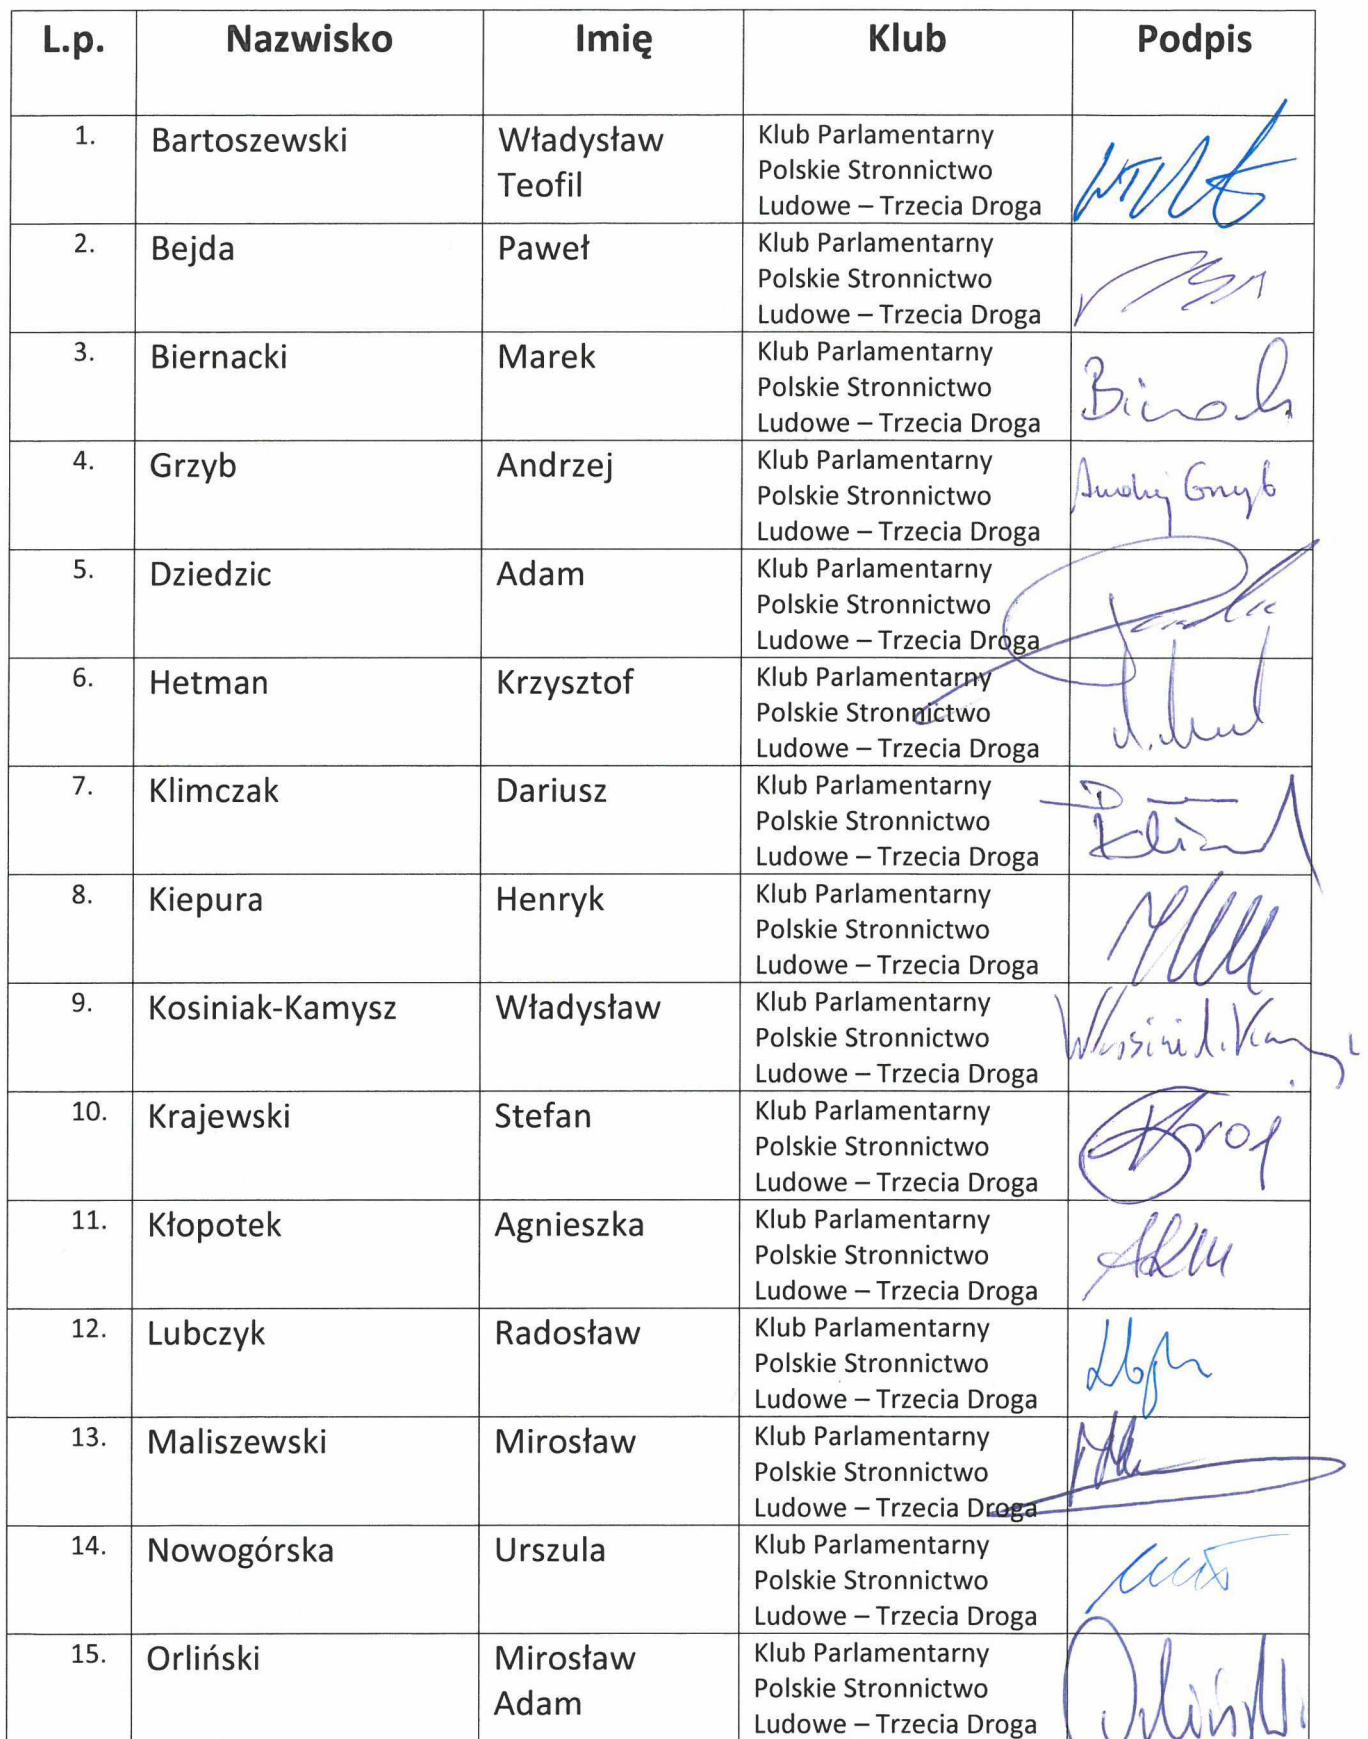 L.p. Nazwisko Imię Klub Podpis
1. Bartoszewski Władysław Klub Parlamentarny
Teofil Polskie Stronnictwo
Ludowe – Trzecia Droga
2. Bejda Paweł Klub Parlamentarny
Polskie Stronnictwo
Ludowe – Trzecia Droga
3. Biernacki Marek Klub Parlamentarny
Polskie Stronnictwo
Ludowe – Trzecia Droga
4. Grzyb Andrzej Klub Parlamentarny
Polskie Stronnictwo Andrzej Grzyb
Ludowe – Trzecia Droga
5. Dziedzic Adam Klub Parlamentarny
Polskie Stronnictwo
Ludowe – Trzecia Droga
6. Hetman Krzysztof Klub Parlamentarny
Polskie Stronnictwo
Ludowe – Trzecia Droga
7. Klimczak Dariusz Klub Parlamentarny
Polskie Stronnictwo
Ludowe – Trzecia Droga
8. Kiepura Henryk Klub Parlamentarny
Polskie Stronnictwo
Ludowe – Trzecia Droga
9. Kosiniak-Kamysz Władysław Klub Parlamentarny
Polskie Stronnictwo
Ludowe – Trzecia Droga
10. Krajewski Stefan Klub Parlamentarny
Polskie Stronnictwo
Ludowe – Trzecia Droga
11. Kłopotek Agnieszka Klub Parlamentarny
Polskie Stronnictwo
Ludowe – Trzecia Droga
12. Lubczyk Radosław Klub Parlamentarny
Polskie Stronnictwo
Ludowe – Trzecia Droga
13. Maliszewski Mirosław Klub Parlamentarny
Polskie Stronnictwo
Ludowe – Trzecia Droga
14. Nowogórska Urszula Klub Parlamentarny
Polskie Stronnictwo
Ludowe – Trzecia Droga
15. Orliński Mirosław Klub Parlamentarny
Adam Polskie Stronnictwo
Ludowe – Trzecia Droga